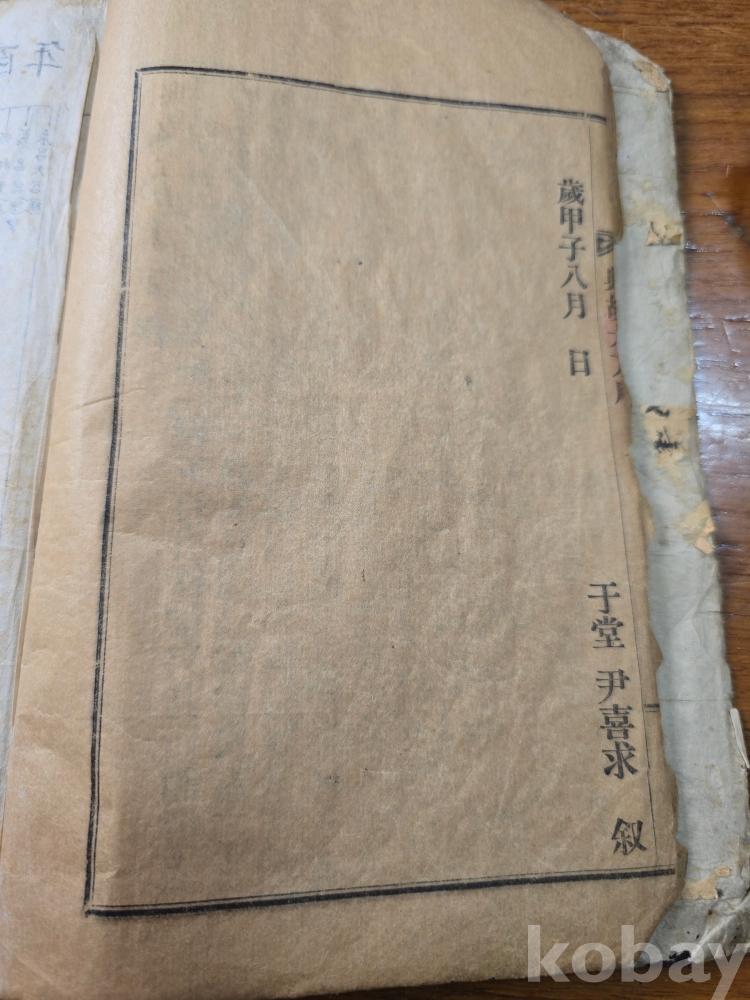 歲甲子八月 日
于堂 尹喜求 叙
kobay